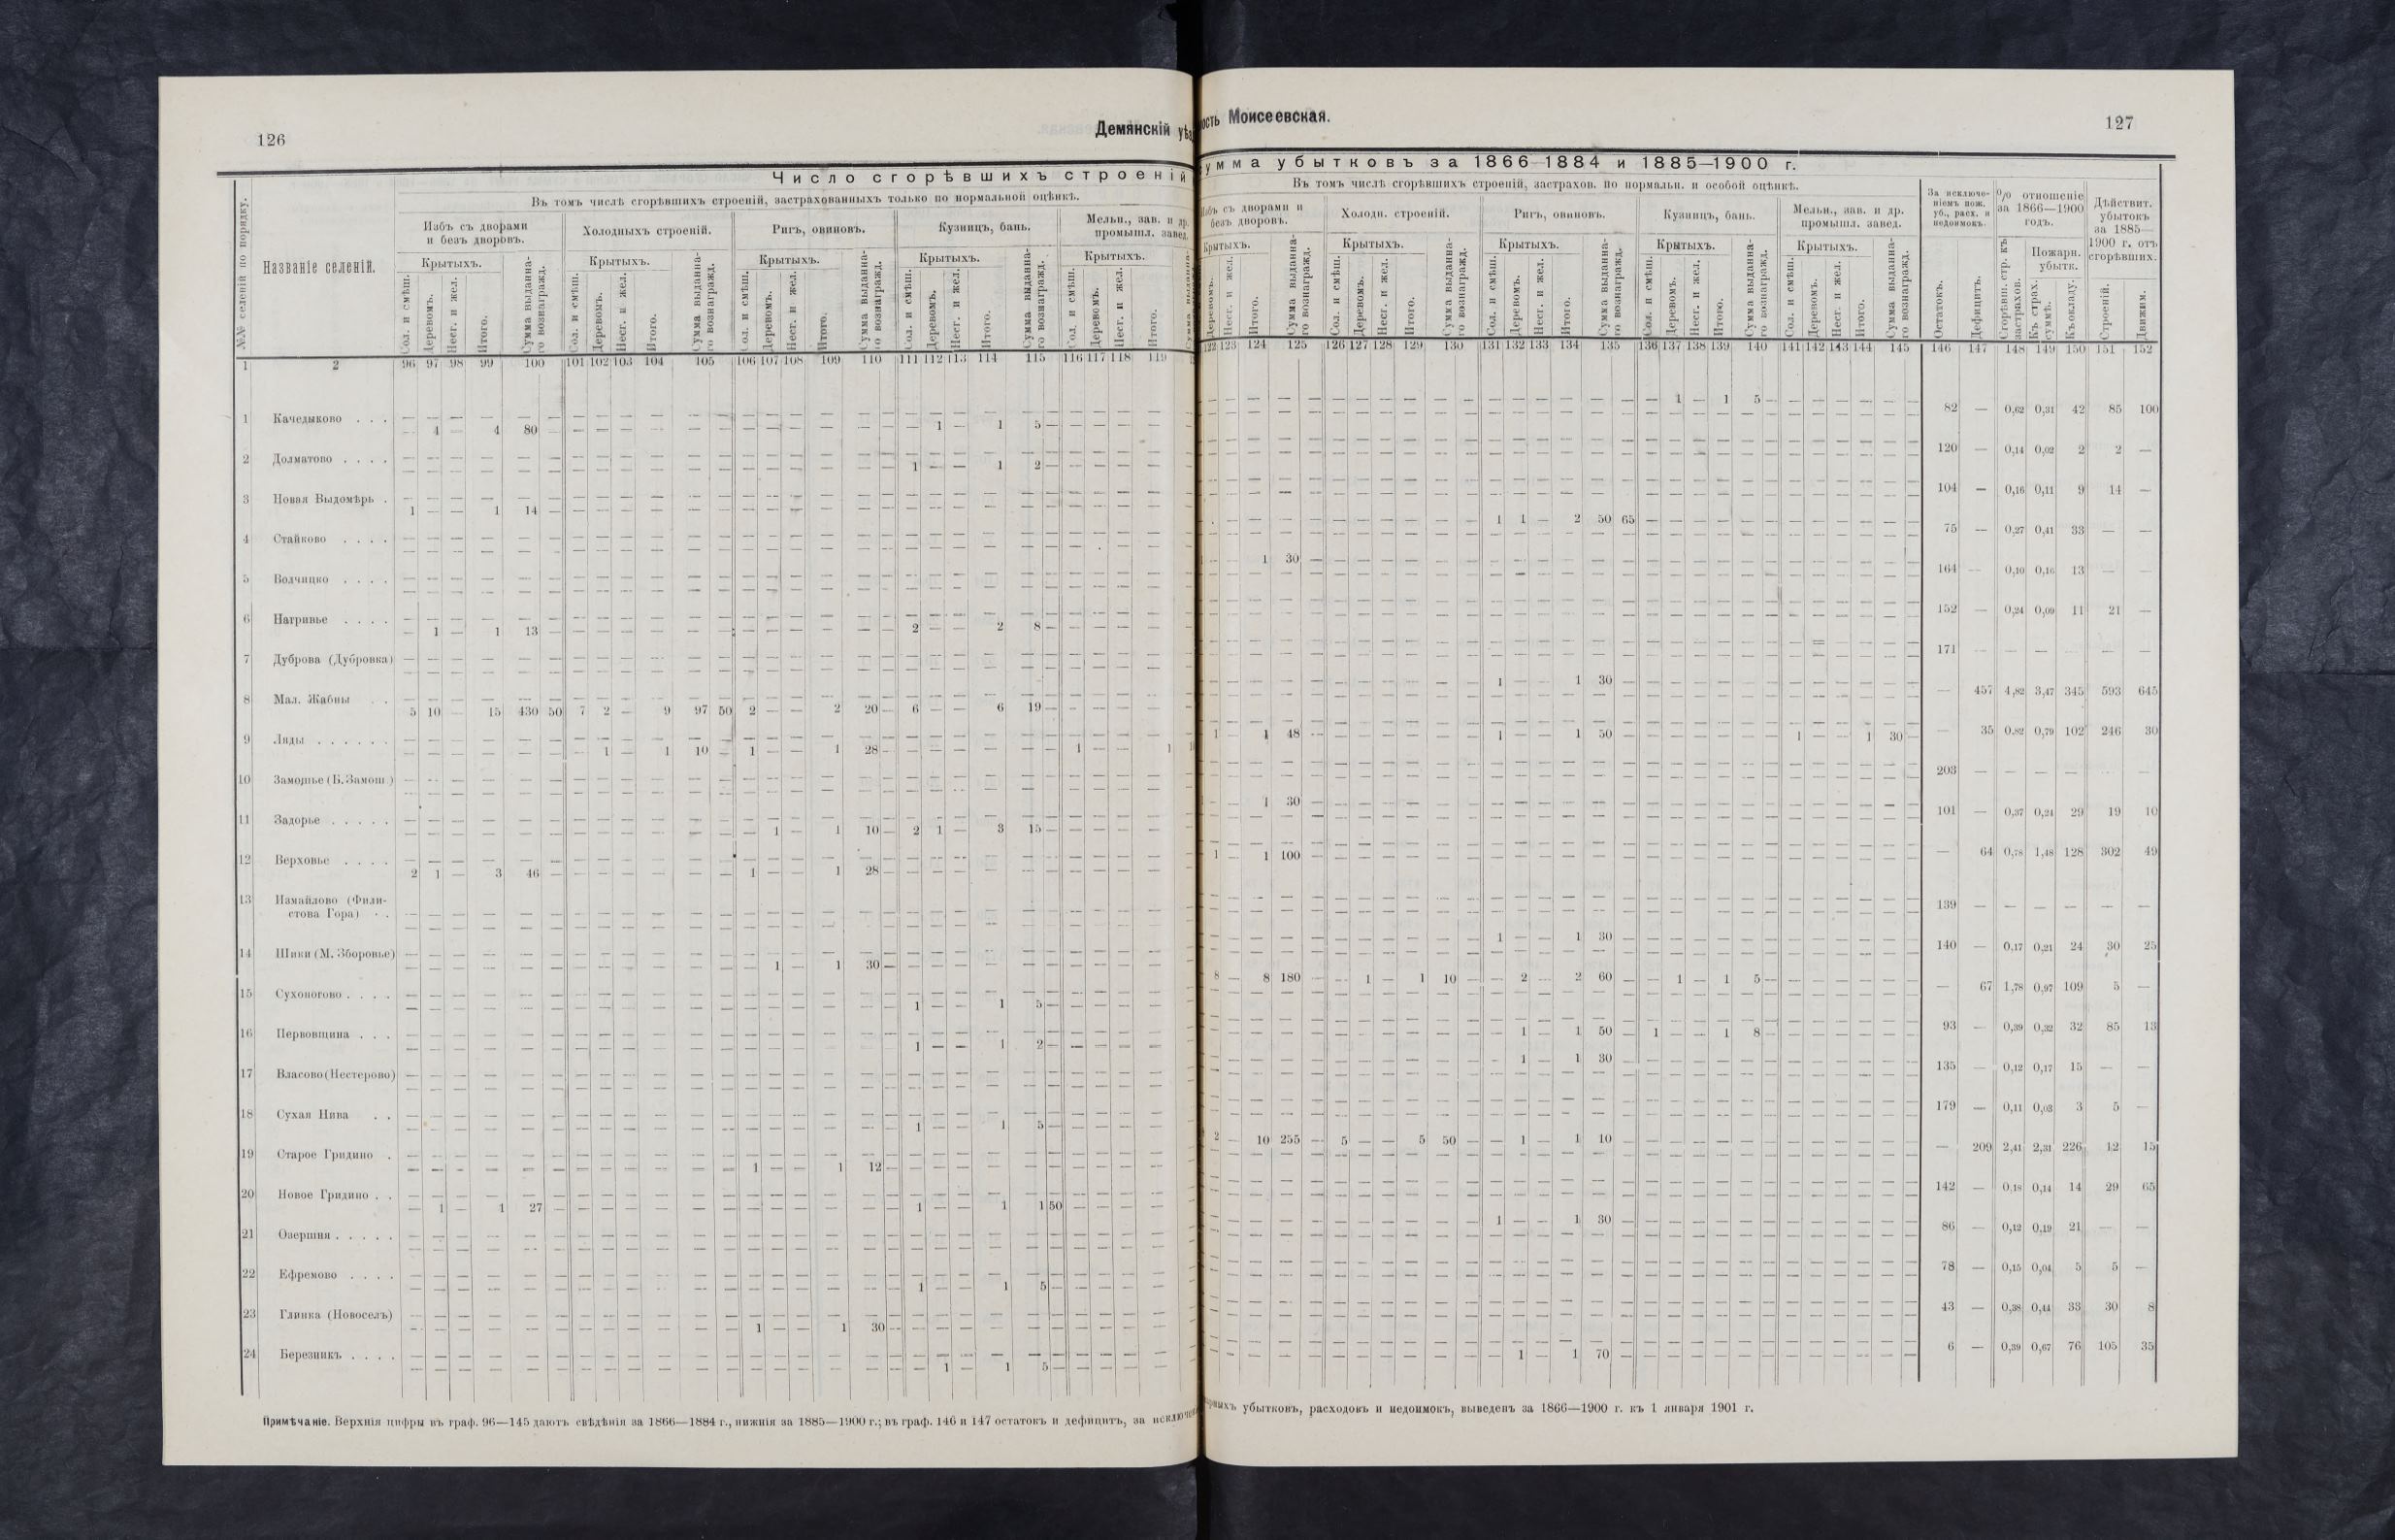 126
Демянскій
Число сгорѣвшихъ строеній
Въ томъ числѣ сгорѣвшихъ строеній, застрахованныхъ только по нормальной оцѣнкѣ.
№№ селеній по порядку.
Названіе селеній.
Избъ съ дворами и безъ дворовъ.
Холодныхъ строеній.
Ригъ, овиновъ.
Кузницъ, бань.
Мельн., зав. и др. промышл. завед.
Крытыхъ. Крытыхъ. Крытыхъ. Крытыхъ. Крытыхъ.
Сол. и смѣш. Деревомъ. Несг. и жел. Итого. Сумма выданна-го вознагражд.
Сол. и смѣш. Деревомъ. Несг. и жел. Итого. Сумма выданна-го вознагражд.
Сол. и смѣш. Деревомъ. Несг. и жел. Итого. Сумма выданна-го вознагражд.
Сол. и смѣш. Деревомъ. Несг. и жел. Итого. Сумма выданна-го вознагражд.
Сол. и смѣш. Деревомъ. Несг. и жел. Итого.
1 2 96 97 98 99 100 101 102 103 104 105 106 107 108 109 110 111 112 113 114 115 116 117 118 119
1 Качедыково . . .
4 — 4 80 — 1 — 1 5 —
2 Долматово . . . .
1 — — 1 2 —
3 Новая Выдомѣрь .
1 — — 1 14 —
4 Стайково . . . .
5 Волчицко . . . .
6 Нагривье . . . .
— 1 — 1 13 — 2 — — 2 8 —
7 Дуброва (Дубровка)
8 Мал. Жабны . .
5 10 — 15 430 50 7 2 — 9 97 50 2 — — 2 20 — 6 — — 6 19 —
9 Ляды . . . . . .
— 1 — 1 10 — 1 — — 1 28 — 1 — — 1
10 Замошье (Б. Замош.)
11 Задорье . . . . .
— 1 — 1 10 — 2 1 — 3 15 —
12 Верховье . . . .
2 1 — 3 46 — 1 — — 1 28 —
13 Измайлово (Фили-
стова Гора) . .
14 Шики (М. Зборовье)
— 1 — 1 30 —
15 Сухоногово . . . .
1 — — 1 5 —
16 Первовщина . . .
1 — — 1 2 —
17 Власово (Нестерово)
18 Сухая Нива . .
1 — — 1 5 —
19 Старое Гридино .
1 — — 1 12 —
20 Новое Гридино . .
— 1 — 1 27 — 1 — — 1 1 50
21 Озершня . . . . .
22 Ефремово . . . .
1 — — 1 5
23 Глинка (Новоселъ)
1 — — 1 30 —
24 Березникъ . . . .
— 1 — 1 5 —
Примѣчаніе. Верхнія цифры въ граф. 96—145 даютъ свѣдѣнія за 1866—1884 г., нижнія за 1885—1900 г.; въ граф. 146 и 147 остатокъ и дефицитъ, за
Моисеевская.
127
убытковъ за 1866—1884 и 1885—1900 г.
Въ томъ числѣ сгорѣвшихъ строеній, застрахов. по нормальн. и особой оцѣнкѣ.
Избъ съ дворами и безъ дворовъ.
Холодн. строеній.
Ригъ, овиновъ.
Кузницъ, бань.
Мельн., зав. и др. промышл. завед.
За исключе-ніемъ пож. уб., расх. и недоимокъ.
% отношеніе за 1866—1900 годъ.
Дѣйствит. убытокъ за 1885—1900 г. отъ сгорѣвших.
Крытыхъ. Крытыхъ. Крытыхъ. Крытыхъ. Крытыхъ.
Пожарн. убытк.
Деревомъ. Несг. и жел. Итого. Сумма выданна-го вознагражд.
Сол. и смѣш. Деревомъ. Несг. и жел. Итого. Сумма выданна-го вознагражд.
Сол. и смѣш. Деревомъ. Несг. и жел. Итого. Сумма выданна-го вознагражд.
Сол. и смѣш. Деревомъ. Несг. и жел. Итого. Сумма выданна-го вознагражд.
Сол. и смѣш. Деревомъ. Несг. и жел. Итого. Сумма выданна-го вознагражд.
Остатокъ. Дефицитъ. Сгорѣвш. стр. къ застрахов. Къ страх. суммѣ. Къ окладу. Строеній. Движим.
122 123 124 125 126 127 128 129 130 131 132 133 134 135 136 137 138 139 140 141 142 143 144 145 146 147 148 149 150 151 152
1 — 1 5 —
82 — 0,62 0,31 42 85 100
120 — 0,14 0,02 2 2 —
104 — 0,16 0,11 9 14 —
1 1 — 2 50 65
75 — 0,27 0,41 33 — —
1 30 —
164 — 0,10 0,16 13 — —
152 — 0,24 0,09 11 21 —
171 — — — — — —
1 — — 1 30 —
— 457 4,82 3,47 345 593 645
1 — 1 48 — 1 — — 1 50 — 1 — — 1 30 —
— 35 0,82 0,79 102 246 30
203 — — — — — —
1 30 —
101 — 0,37 0,24 29 19 10
1 — 1 100 —
— 64 0,78 1,48 128 302 49
139 — — — — — —
1 — — 1 30 —
140 — 0,17 0,21 24 30 25
8 — 8 180 — — 1 — 1 10 — — 2 — 2 60 — — 1 — 1 5 —
— 67 1,78 0,97 109 5 —
— 1 — 1 50 — 1 — — 1 8 —
93 — 0,39 0,32 32 85 13
— 1 — 1 30 —
135 — 0,12 0,17 15 — —
179 — 0,11 0,03 3 5 —
2 — 10 255 — 5 — — 5 50 — — 1 — 1 10 —
— 209 2,41 2,31 226 12 15
142 — 0,18 0,14 14 29 65
1 — — 1 30 —
86 — 0,12 0,19 21 — —
78 — 0,15 0,04 5 5 —
43 — 0,38 0,44 33 30 8
— 1 — 1 70 —
6 — 0,39 0,67 76 105 35
убытковъ, расходовъ и недоимокъ, выведенъ за 1866—1900 г. къ 1 января 1901 г.